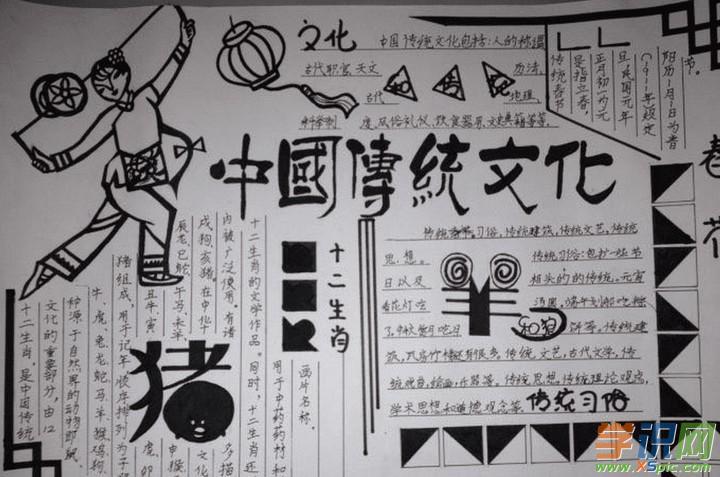 文化
中国传统文化包括：人的称谓
古代职官 天文
历法，
古代
地理，
科举制
度，风俗礼仪，饮食器用，文史典籍等等。
节。
阳历1月1日为昔
(1911年)规定
旦，民国元年
正月初一为元
是指立春，
传统春节
春
花
中國傳統文化
传统习俗，传统建筑，传统文艺，传统
思想。
传统习俗：包扩一些节
日以及
相关的的传统。元宵
看花灯吃
汤圆，端午划船吃粽
了，中秋赏月吃月
和狗
饼等。传统建
传统文艺，古代文学，传
统戏曲，绘画，乐器等。传统思想，传统理论观念，
学术思想和道德观念等。
传统习俗
十二生肖
画片名称。
用于中药药材和
十二生肖的文学作品。同时，十二生肖还
内被广泛使用，有诸
戌狗、亥猪。在中化十
辰龙、巳蛇、午马、未羊、
丑牛、寅
猪组成，用于记年，顺序排列为子鼠
牛、虎、兔、龙、蛇、马、羊、猴、鸡、狗、
种源于自然界的动物即鼠、
文化的重要部分，由12
十二生肖，是中国传统
猪
虎、卯
申猴
文化
多描
学识网
www.XSpic.com